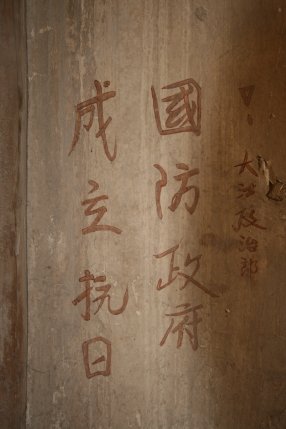 成立抗日
國防政府
政治部